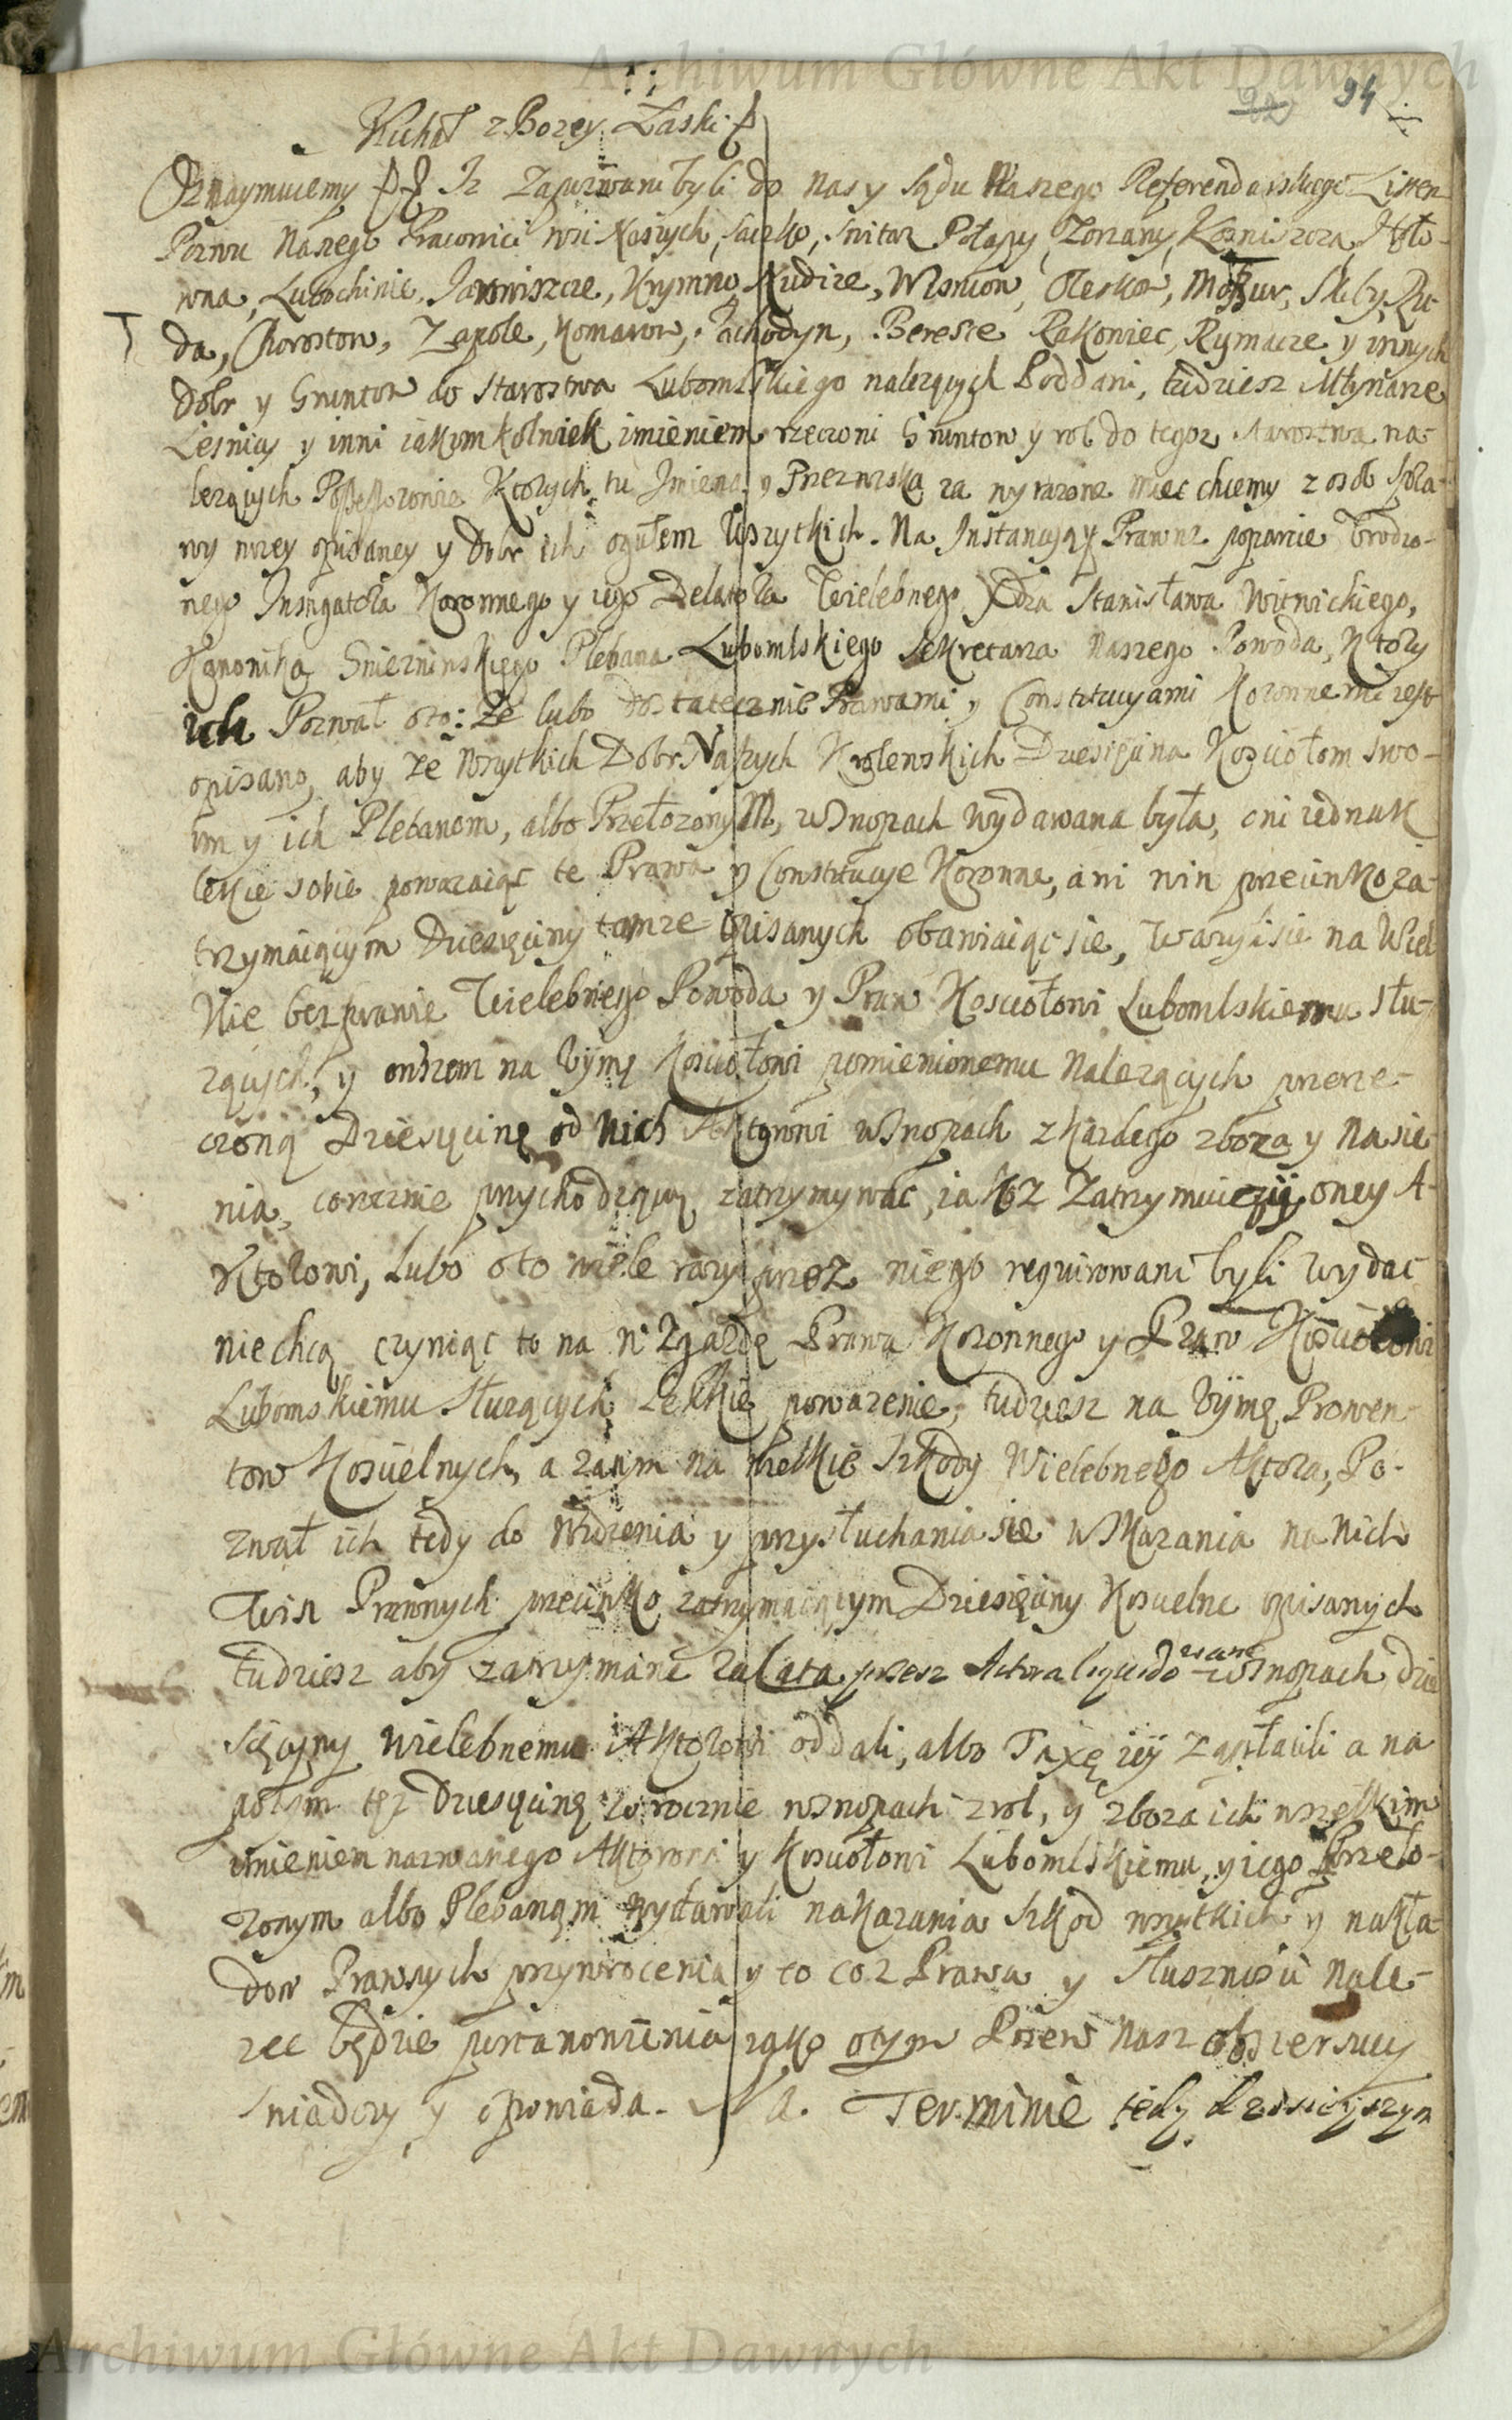 Archiwum Główne Akt Dawnych
94
Michał z Bozey Łaski
Oznaymuiemy Iz Zapozwani byli do nas y sądu Naszego Referendarskiego Listem
Pozwu Naszego Pracowici wsi Koszych, Sacko, Switaz Połapy, Zorzany, Hoło-
wna, Lubochinie, Jarewiszcze, Krymno, Kudize, Wiśniow, Olesko, Mosur, Skiby, Ru-
da, Chorostow, Zapole, Komarow, Pochodyn, Bereśce Rakoniec, Rymacze y innych
Dobr y Gruntow do Starostwa Lubomlskiego nalezących Poddani, tudziesz Młynarze
Leśnicy y inni iakimkolwiek imieniem rzeczeni Gruntow y rol do tegoz starostwa na-
lezących Possessorowie Ktorych tu Jmiona y Przezwiska za wyrazone miec chcemy z osob spra-
wy nizey opisaney y Dobr ich ogułem Wszytkich. Na Instancyą y Prawne poparcie Urodzo-
nego Instigatora Koronnego y iego Delatora Wielebnego Xdza Stanisława Witwickiego,
Kanonika Gniezninskiego Plebana Lubomlskiego Sekretarza Naszego Powoda, Ktory
ich Pozwał oto: Ze lubo dostatecznie Prawami y Constitucyami Koronnemi iest
opisano, aby ze Wszytkich Dobr Naszych Krolewskich Dziesięcina Kosciołom swo-
im y ich Plebanom, albo Przełozonym, w Snopach wydawana była, oni iednak
lekce sobie powazaiąc te Prawa y Constitucye Koronne, ani win przeciwko za-
trzymaiącym Dziesięciny tamze opisanych obawiaiąc sie, wazyli sie na Wiel
Nie bezprawie Wielebnego Powoda y Praw Kosciołowi Lubomlskiemu słu-
zących, y owszem na Uymę Kosciołowi pomienionemu Nalezących przerze-
czoną Dziesięcinę od nich Aktorowi w Snopach z Kazdego zboza y Nasie-
nia, corocznie przychodzącą zatrzymywac, iakoz Zatrzymuią y oney A-
ktorowi, Lubo oto wiele razy przez niego requirowani byli Wydac
niechcą czyniąc to na Wzgardę Prawa Koronnego y Praw Kosciołowi
Lubomskiemu słuzących Lekkie powazenie, tudziesz na Uymę Prowen-
tow Koscielnych, a zatym na wielkie szkody Wielebnego Aktora, Po-
zwał ich tedy do Widzenia y przysłuchania sie Wskazania na Nich
Win Prawnych przeciwko zatrzymaiącym Dziesięciny Koscielne opisanych
tudziesz aby zatrzymane za Lata przez Actora liquidowane w Snopach dzie
sięciny Wielebnemu Aktorowi oddali, albo Taxę iey zapłacili a na
potym tęz Dziesięcinę corocznie w Snopach z rol, y zboza ich wszelkim
imieniem nazwanego Aktorowi y Kosciołowi Lubomlskiemu, y iego Przeło-
zonym albo Plebanom wydawali nakazania szkod wszytkich y nakła-
dow Prawnych przywrocenia y to co z Prawa y Słusznosci Nale-
zec będzie postanowienia iako otym Pozew Nasz obszerniey
Swiadczy y opowiada. Na Terminie tedy dzisieyszym
Archiwum Główne Akt Dawnych